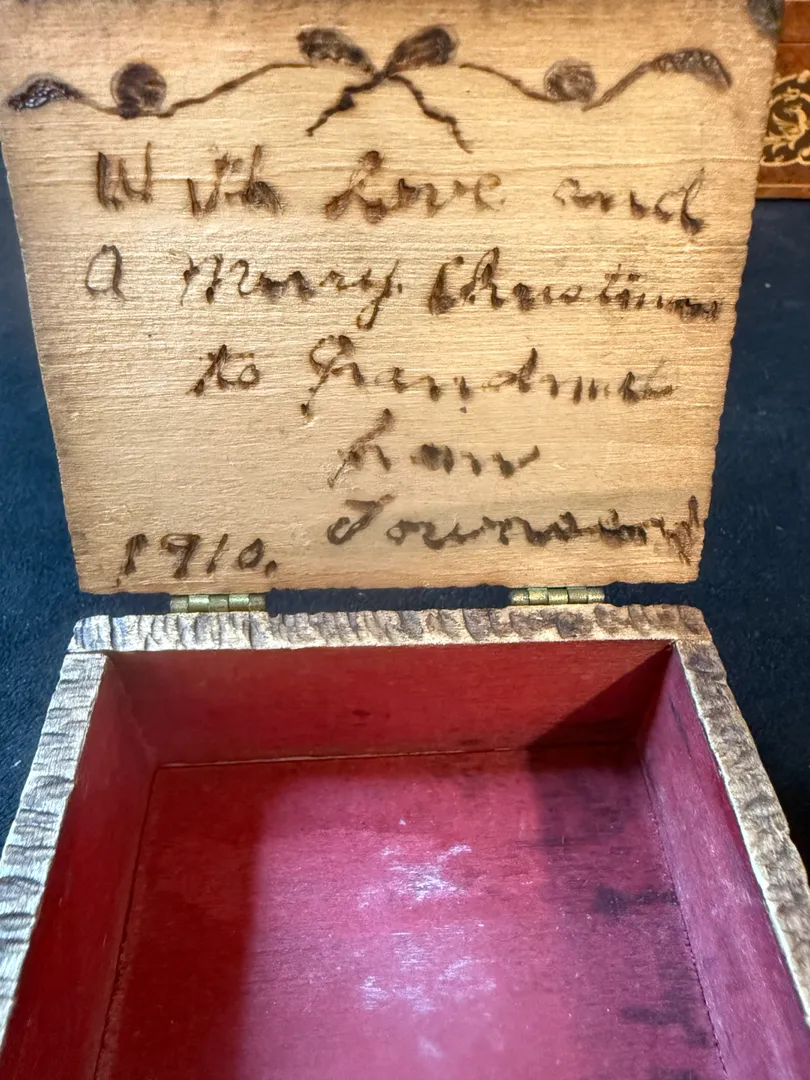 With Love and
A Merry Christmas
to Grandma
from
1910.